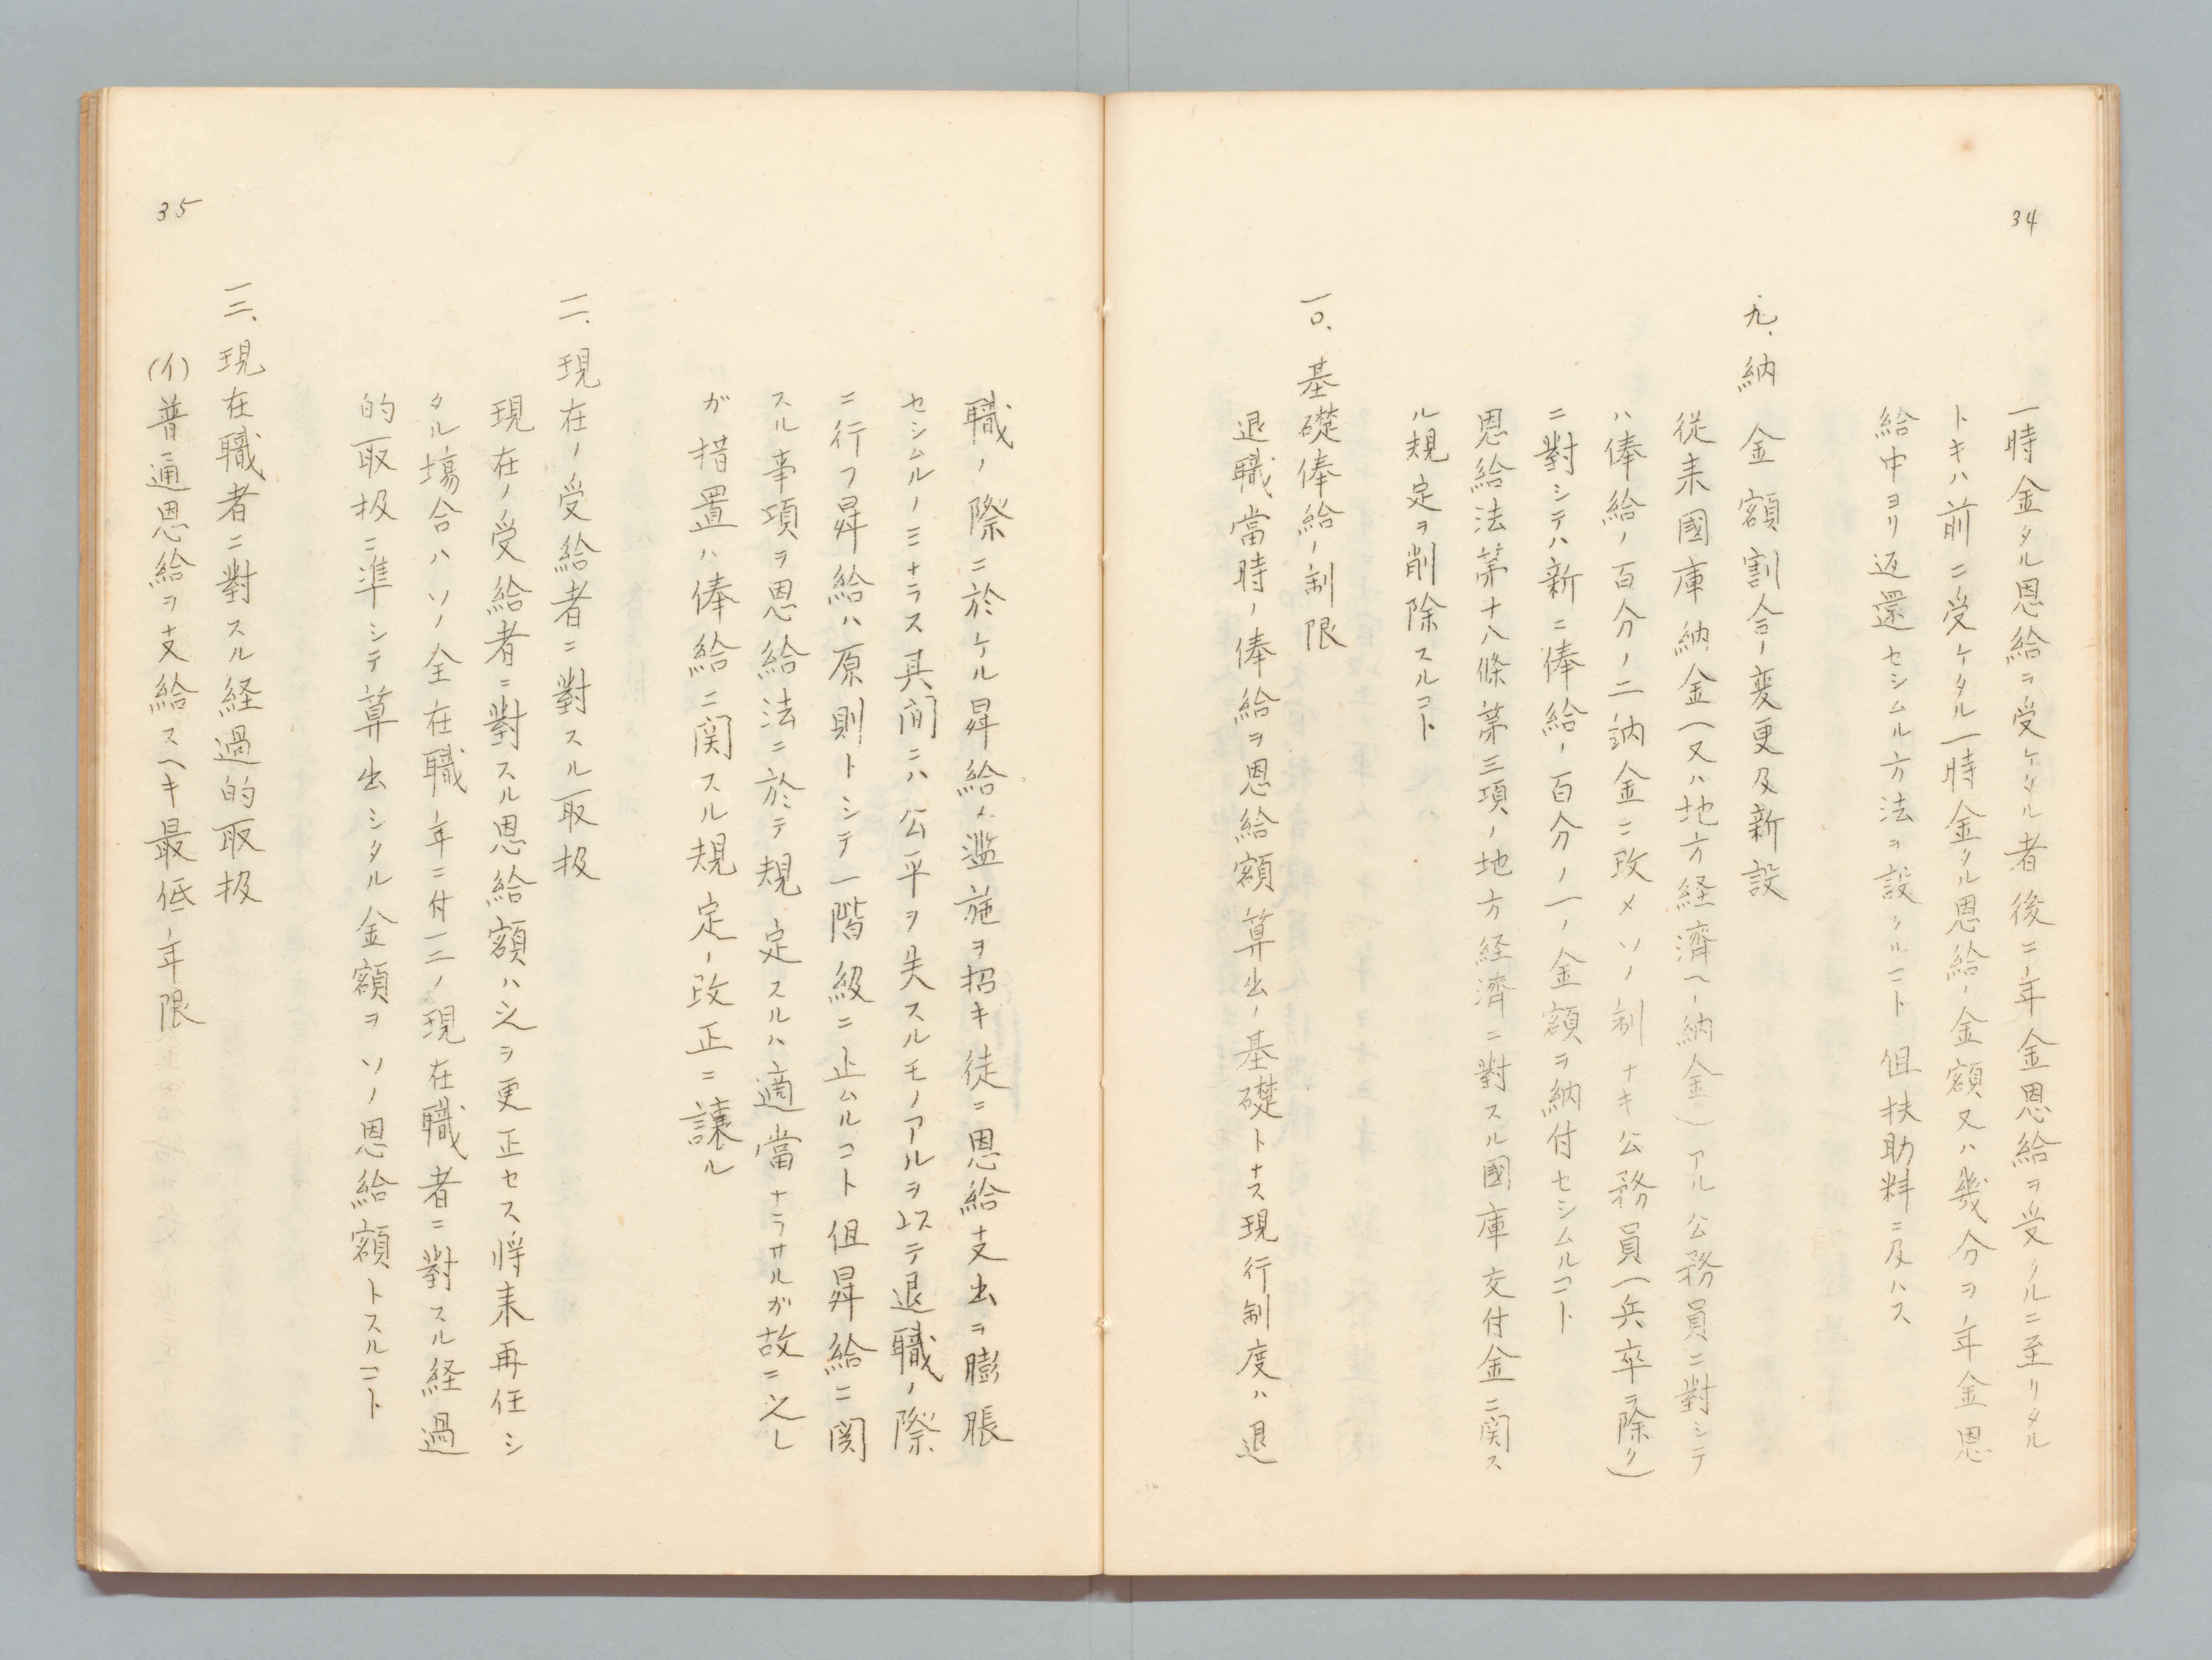 34
一時金タル恩給ヲ受ケタル者後ニ年金恩給ヲ受クルニ至リタル
トキハ前ニ受ケタル一時金タル恩給ノ金額又ハ幾分ヲ年金恩
給中ヨリ返還セシムル方法ヲ設クルコト 但扶助料ニ及ハス
九、納金額割合ノ変更及新設
従来國庫納金(又ハ地方経済ヘノ納金)アル公務員ニ對シテ
ハ俸給ノ百分ノ二納金ニ改メソノ制ナキ公務員(兵卒ヲ除ク)
ニ對シテハ新ニ俸給ノ百分ノ一ノ金額ヲ納付セシムルコト
恩給法第十八條第三項ノ地方経済ニ對スル國庫交付金ニ関ス
ル規定ヲ削除スルコト
一〇、基礎俸給ノ制限
退職當時ノ俸給ヲ恩給額算出ノ基礎トナス現行制度ハ退
職ノ際ニ於ケル昇給ノ濫施ヲ招キ徒ニ恩給支出ヲ膨脹
セシムルノミナラス其間ニハ公平ヲ失スルモノアルヲ以テ退職ノ際
ニ行フ昇給ハ原則トシテ一階級ニ止ムルコト 但昇給ニ関
スル事項ヲ恩給法ニ於テ規定スルハ適當ナラサルガ故ニ之レ
ガ措置ハ俸給ニ関スル規定ノ改正ニ譲ル
一一、現在ノ受給者ニ對スル取扱
現在ノ受給者ニ對スル恩給額ハ之ヲ更正セス将来再任シ
タル場合ハソノ全在職年ニ付一二ノ現在職者ニ對スル経過
的取扱ニ準シテ算出シタル金額ヲソノ恩給額トスルコト
一二、現在職者ニ對スル経過的取扱
(イ)普通恩給ヲ支給スヘキ最低年限
35